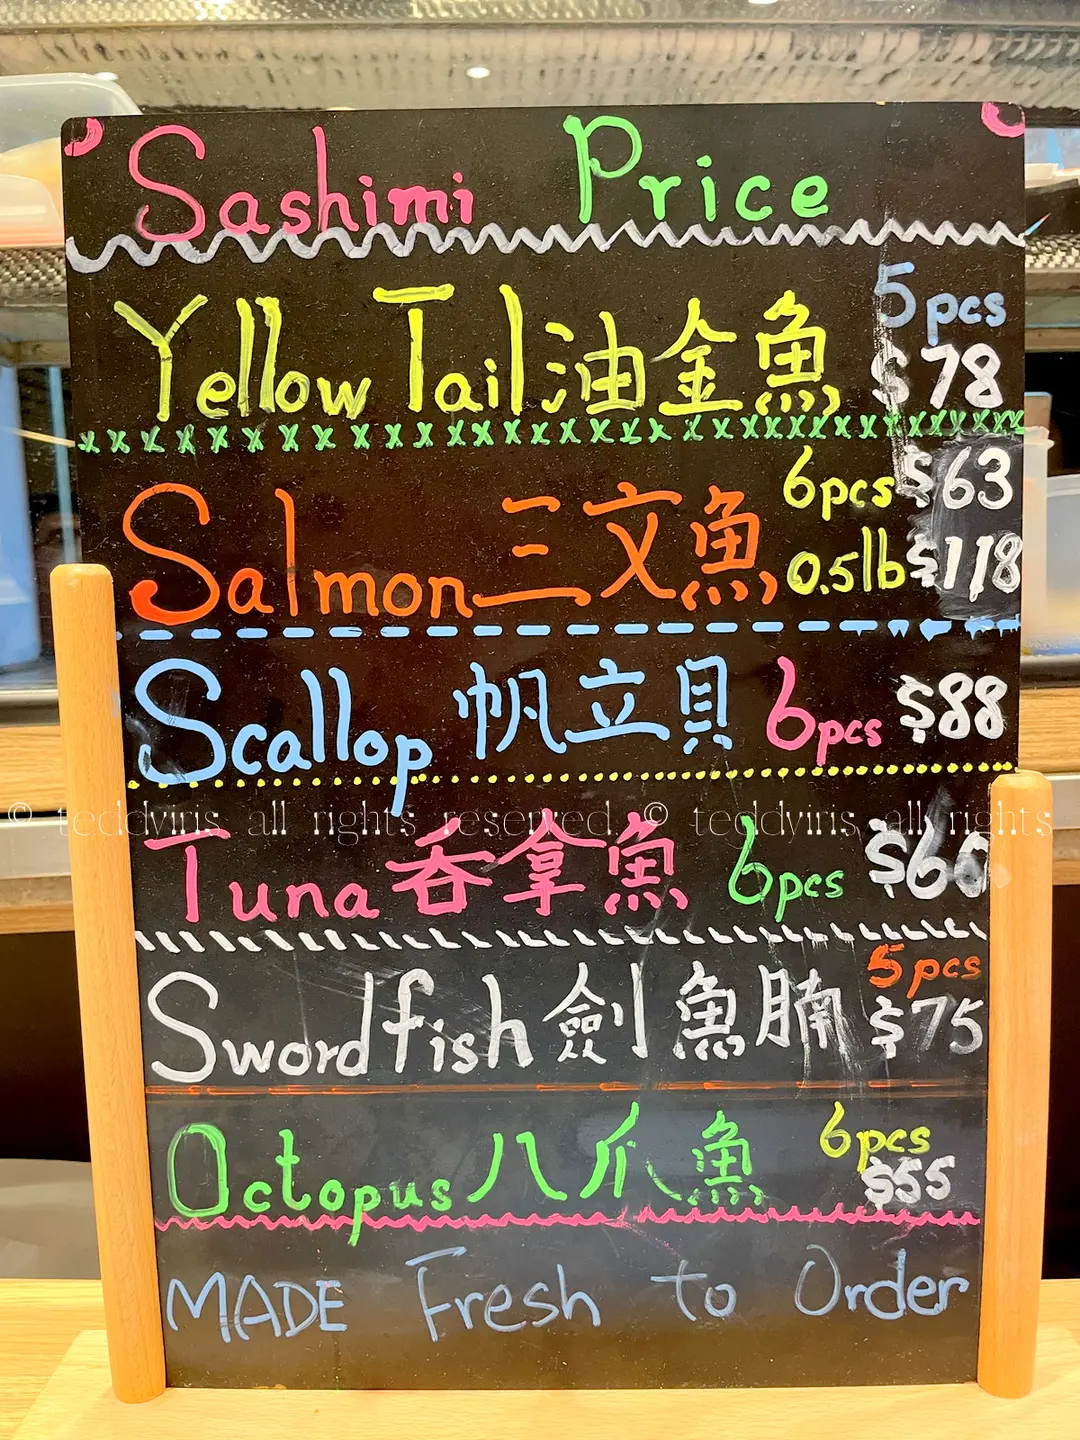 Sashimi Price
Yellow Tail 油金魚 5pcs $78
Salmon 三文魚 6pcs $63
0.5lb $118
Scallop 帆立貝 6pcs $88
© teddyiris all rights reserved © teddyiris all rights
Tuna 吞拿魚 6pcs $60
Swordfish 劍魚腩 5pcs $75
Octopus 八爪魚 6pcs $55
MADE Fresh to Order